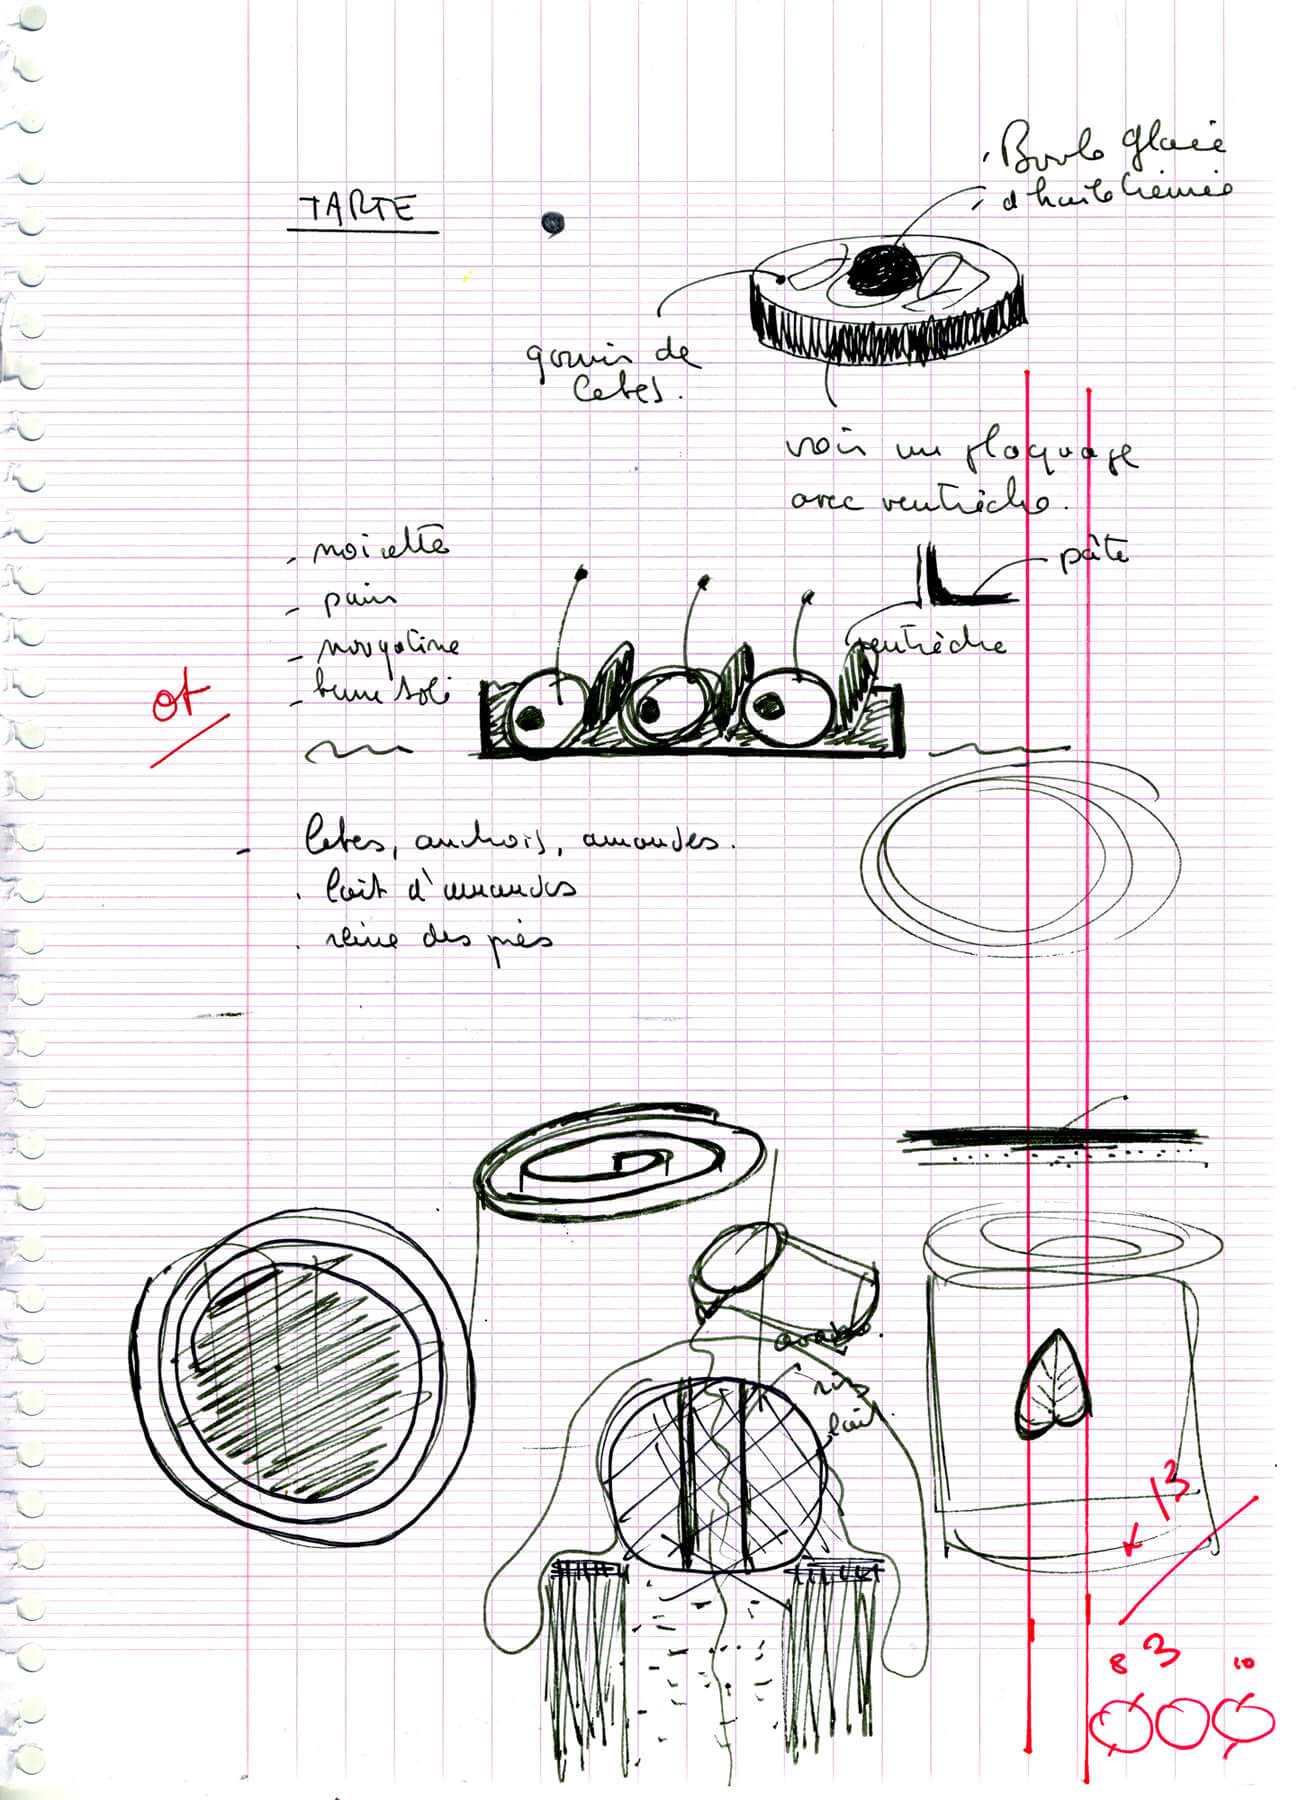 TARTE
. Boule glacée
d'huile
garnis de
Cebes.
voir un plaquage
avec ventrèche.
- noisette
- pain
- nougatine
-
pâte
ventrèche
- Cebes, anchois, amandes.
. lait d'amandes
. reine des prés
riz
lait.
13
8 3 10